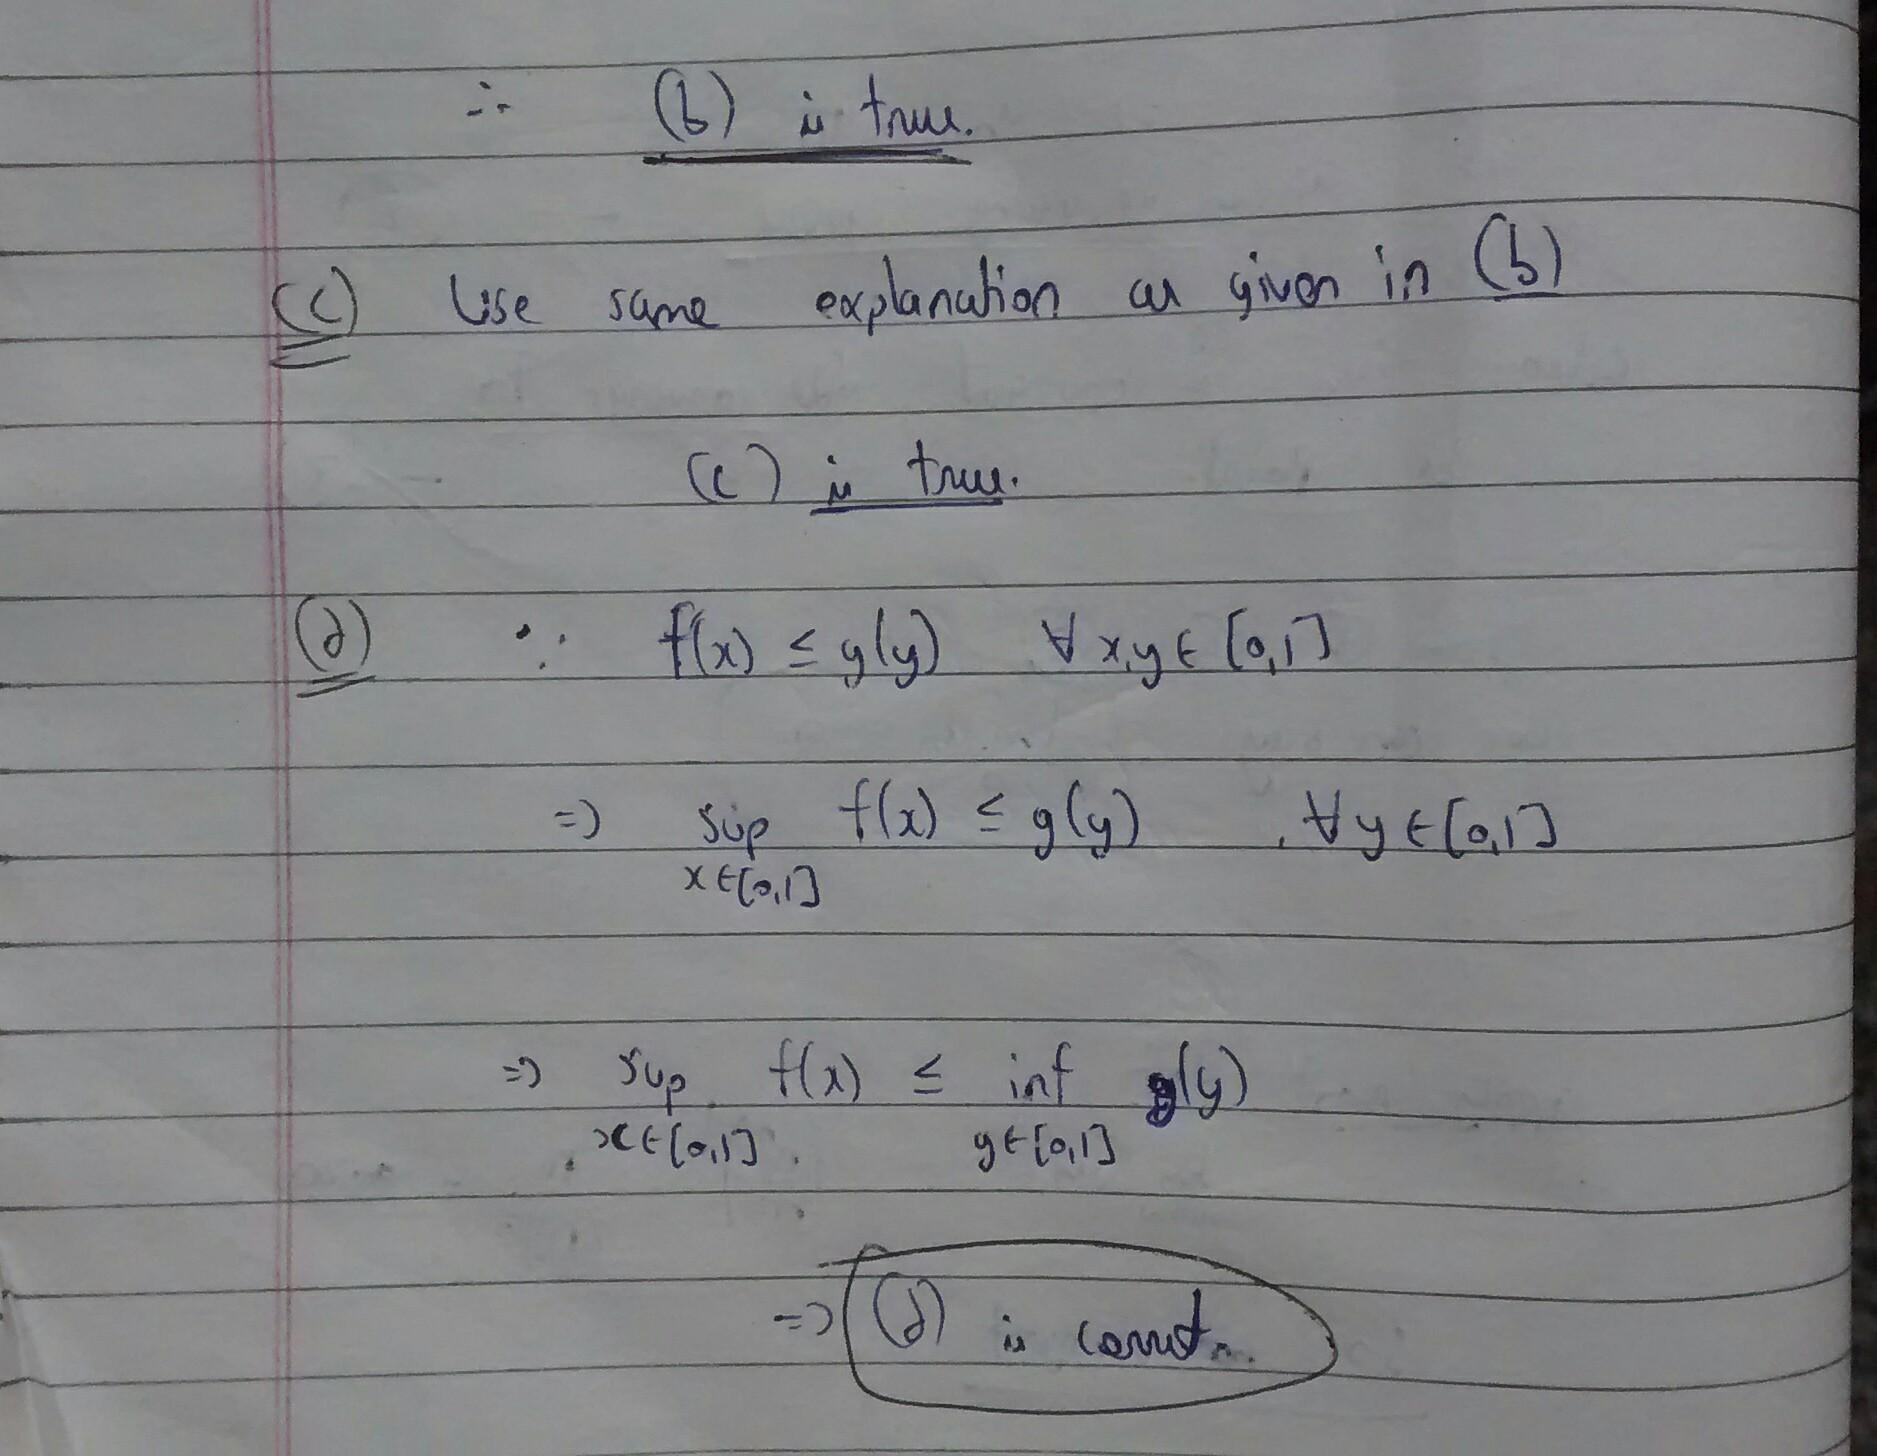 ∴ (b) is true.
(c) Use same explanation as given in (b)
(c) is true.
(d) ∵ f(x) ≤ g(y) ∀ x,y ∈ [0,1]
=> sup f(x) ≤ g(y) , ∀ y ∈ [0,1]
x ∈ [0,1]
=> sup f(x) ≤ inf g(y)
x ∈ [0,1] y ∈ [0,1]
=> (d) is correct.